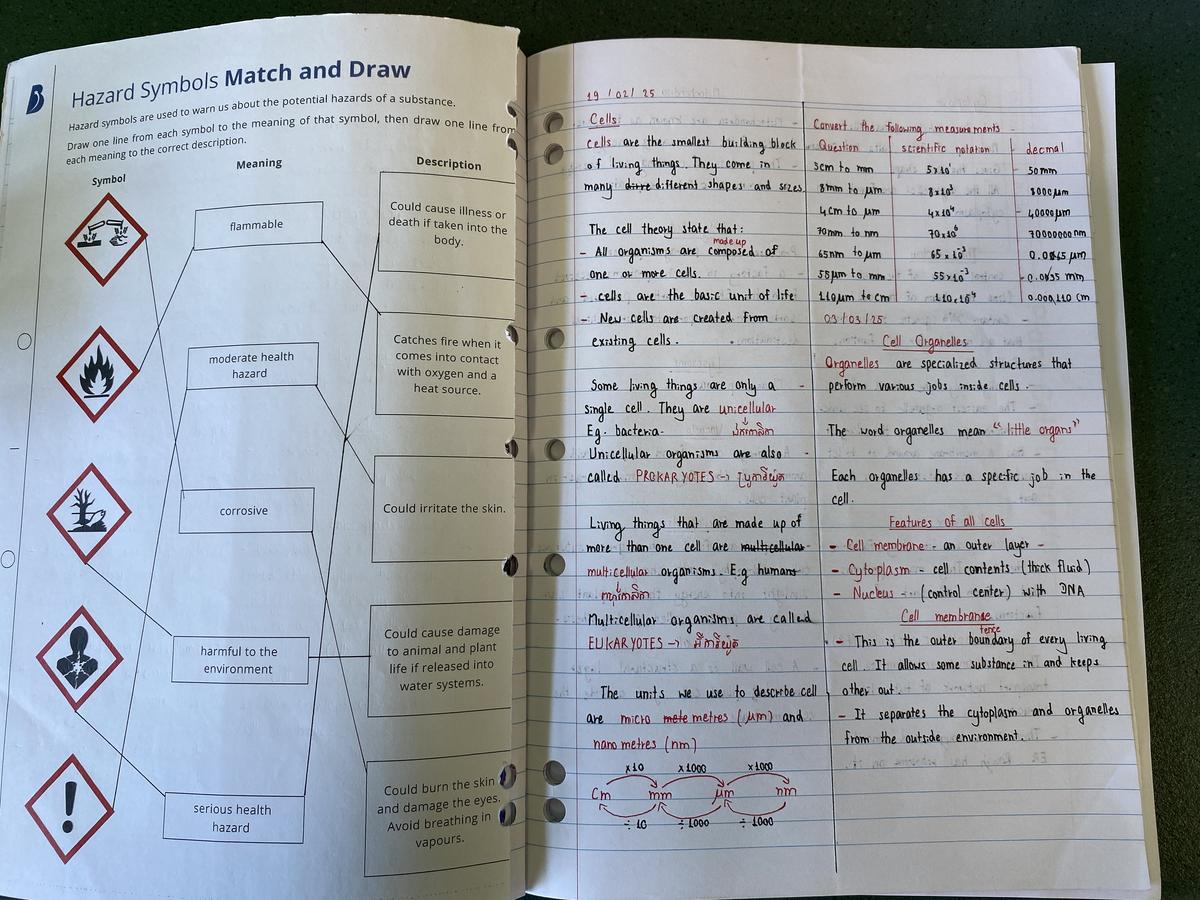 Hazard Symbols Match and Draw
Hazard symbols are used to warn us about the potential hazards of a substance.
Draw one line from each symbol to the meaning of that symbol, then draw one line from
each meaning to the correct description.
Symbol
Meaning
Description
flammable
moderate health
hazard
corrosive
harmful to the
environment
serious health
hazard
Could cause illness or
death if taken into the
body.
Catches fire when it
comes into contact
with oxygen and a
heat source.
Could irritate the skin.
Could cause damage
to animal and plant
life if released into
water systems.
Could burn the skin
and damage the eyes.
Avoid breathing in
vapours.
19 / 02 / 25
Cells
cells are the smallest building block
of living things. They come in
many different shapes and sizes
The cell theory state that:
made up
- All organisms are composed of
one or more cells.
- cells are the basic unit of life
- New cells are created from
existing cells.
Some living things are only a
single cell. They are unicellular
Eg. bacteria
Unicellular organisms are also
called PROKARYOTES →
Living things that are made up of
more than one cell are multicellular
multicellular organisms. E.g humans
Multicellular organisms are called
EUKARYOTES →
The units we use to describe cell
are micro mete metres (μm) and
nano metres (nm)
x10 x1000 x1000
Cm mm μm nm
÷ 10 ÷ 1000 ÷ 1000
Convert the following measurments
Question scientific notation decmal
5cm to mm 5x10¹ 50mm
8mm to μm 8x10³ 8000μm
4cm to μm 4x10⁴ 40000μm
70mm to nm 70x10⁶ 70000000nm
65nm to μm 65x10⁻³ μm
55μm to mm 55x10⁻³ mm
110μm to cm 110x10⁻⁴ 0.000,110 cm
03/03/25
Cell Organelles
Organelles are specialized structures that
perform various jobs inside cells.
The word organelles mean "little organs"
Each organelles has a specific job in the
cell.
Features of all cells
- Cell membrane - an outer layer
- Cytoplasm - cell contents (thick fluid)
- Nucleus - (control center) with DNA
Cell membrane
fence
- This is the outer boundary of every living
cell. It allows some substance in and keeps
other out.
- It separates the cytoplasm and organelles
from the outside environment.